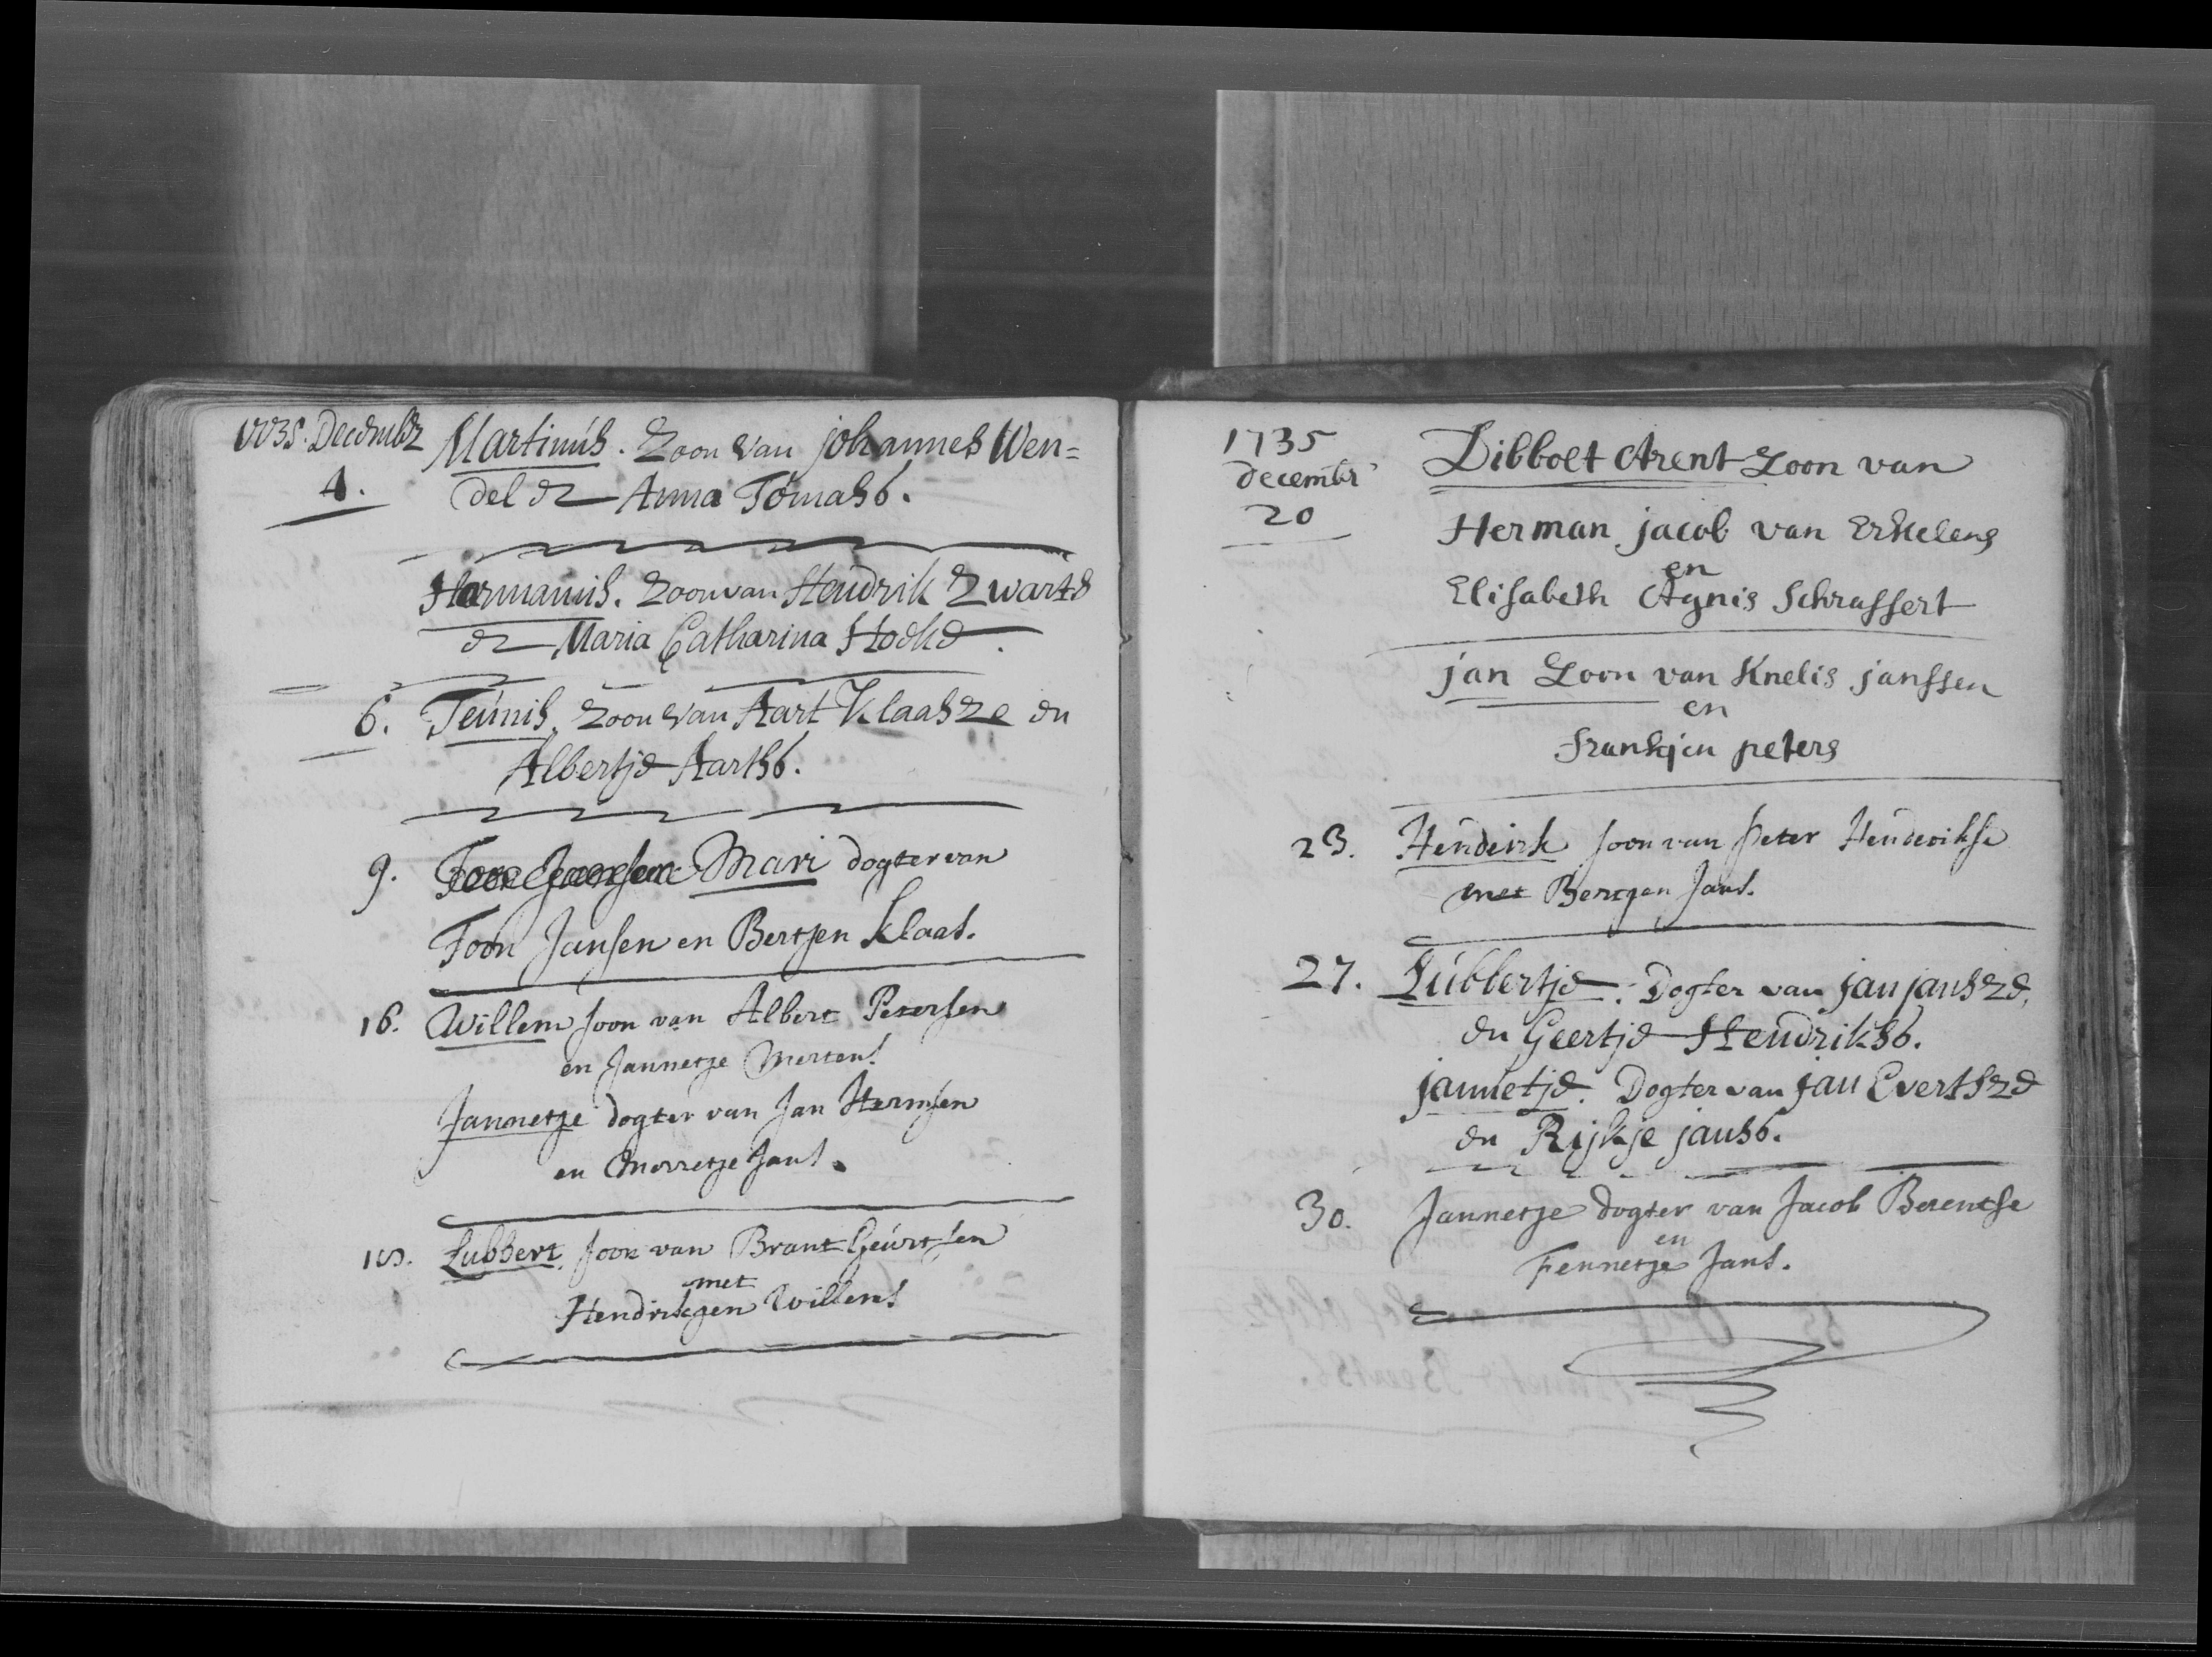 1735. Decembr Martinus. Zoon van johannes Wen=
4. del en Anna Tomass.
Harmanus. Zoon van Hendrik Zwarts
en Maria Catharina Hoeke.
6. Teunis. Zoon van Aart Klaasze en
Albertje Aartss.
9. Toon Jansen Mari dogter van
Toon Jansen en Bertjen Klaas.
16. Willem soon van Albert Petersen
en Jannetje Mertens
Jannetje dogter van Jan Hermsen
en Merretje Jans.
18. Lubbert. soon van Brant Geurtsen
met
Hendrikgen Willems
1735
decembr
20
Dibbolt Arent Zoon van
Herman jacob van Erkelens
en
Elisabeth Agnis Schrassert
jan Zoon van Knelis janssen
en
frankjen peters
23. Henderik soon van Peter Henderikse
met Bertgen Jans.
27. Lubbertje. Dogter van jan jansze,
en Geertje Hendrikss.
jannetje. Dogter van jan Evertsze
en Rijkje janss.
30. Jannetje dogter van Jacob Berentse
en
Fennetje Jans.